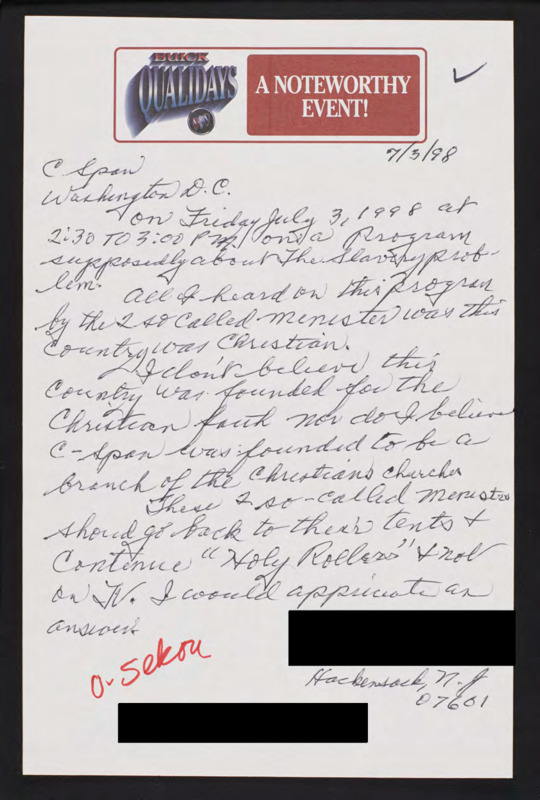 BUICK
QUALIDAYS
A NOTEWORTHY
EVENT!
7/3/98
C Span
Washington D.C.
On Friday July 3, 1998 at
2:30 TO 3:00 P.M. on a Program
supposedly about The Slavery prob-
lem.
All I heard on this program
by the 2 so called menister was this
Country was Christian.
I don't believe this
Country was founded for the
Christian faith nor do I believe
C-Span was founded to be a
branch of the Christians churches
These 2 so-called menisters
should go back to their tents &
Continue "Holy Rollers" & not
on TV. I would appriciate an
answer.
O-Sekou
Hackensack, N.J
07601